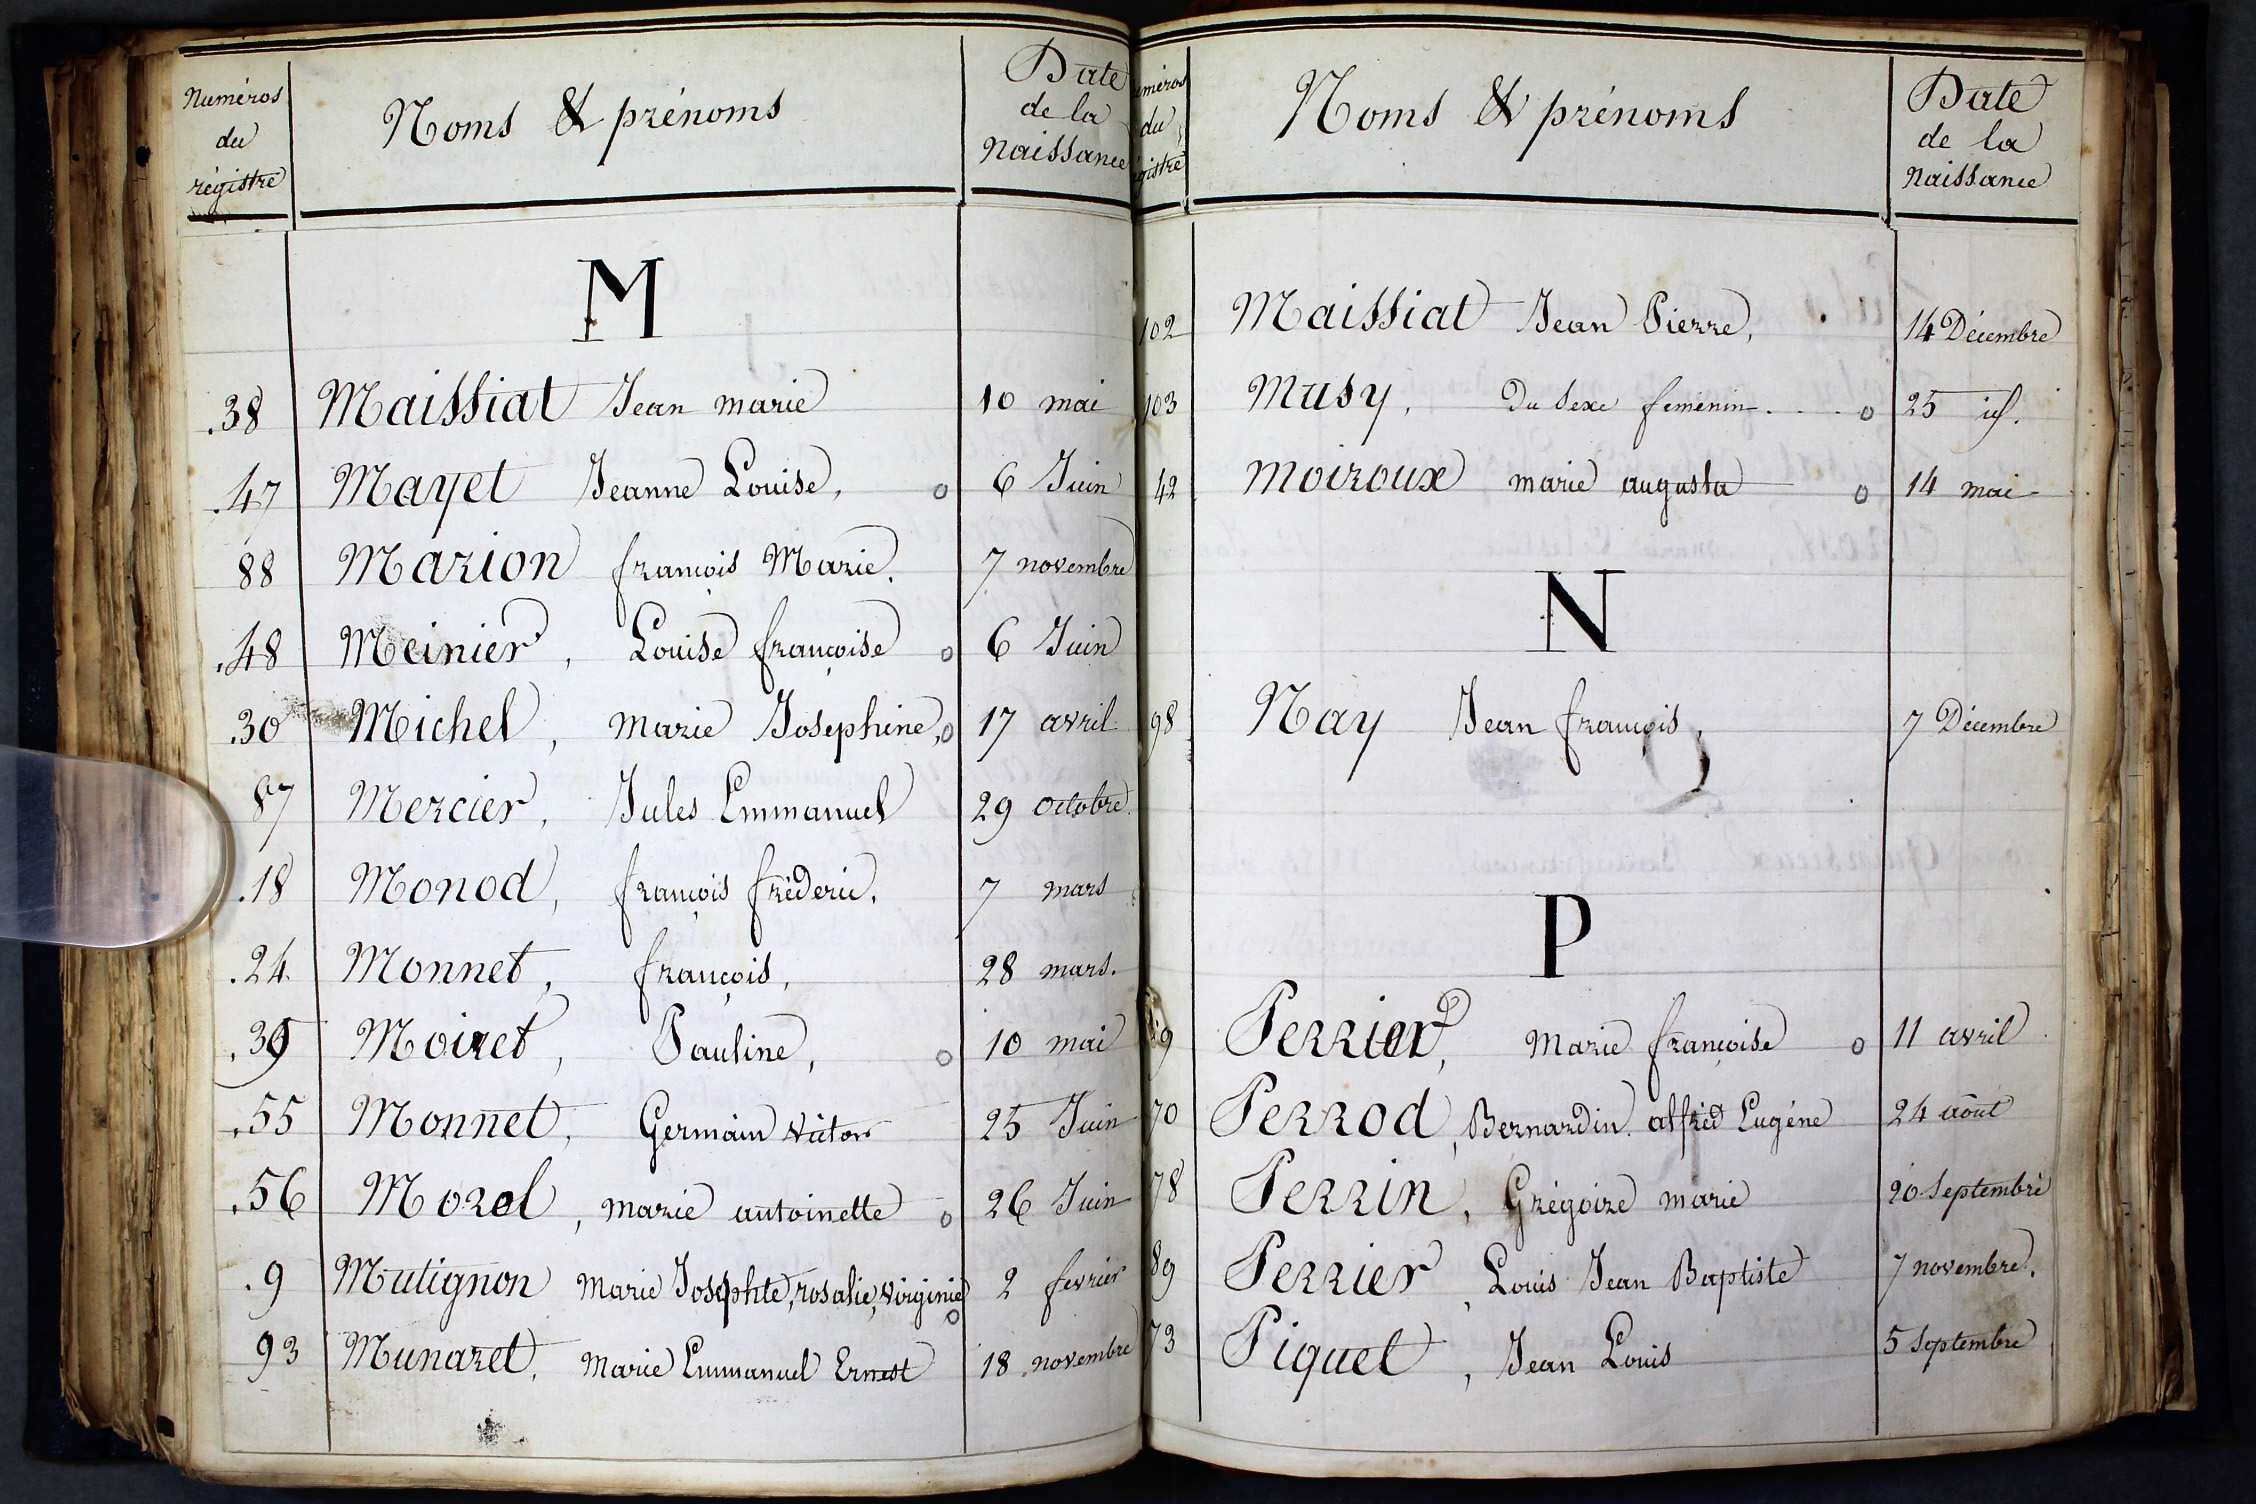 Numéros du régistre Noms & prénoms Date de la Naissance
M
.38 Maissiat Jean marie 10 mai
.47 Mayet Jeanne Louise, o 6 Juin
88 Marion françois Marie. 7 novembre
.48 Meinier, Louise françoise o 6 Juin
.30 Michel, marie Josephine, o 17 avril
87 Mercier, Jules Emmanuel 29 octobre
.18 Monod, françois fréderic. 7 mars
.24. Monnet, françois, 28 mars.
.39 Moiret, Pauline, o 10 mai
.55 Monnet, Germain victor 25 Juin
.56 Morel, marie antoinette o 26 Juin
.9 Mutignon Marie Josephte, rosalie, virginie o 2 fevrier
93 Munaret, Marie Emmanuel Ernest 18 novembre
uméros du égistre Noms & prénoms Date de la Naissance
102 Maissiat Jean Pierre, 14 Décembre
103 Musy, Du Sexe femenin o 25 id.
42 Moiroux marie augusta o 14 mai
N
98 Nay Jean françois, 7 Décembre
P
9 Perrier, Marie françoise o 11 avril
70 Perrod, Bernardin alfred Eugéne 24 aôut
78 Perrin, Grégoire marie 20 Septembre
89 Perrier, Louis Jean Baptiste 7 novembre.
73 Piquet, Jean Louis 5 Septembre